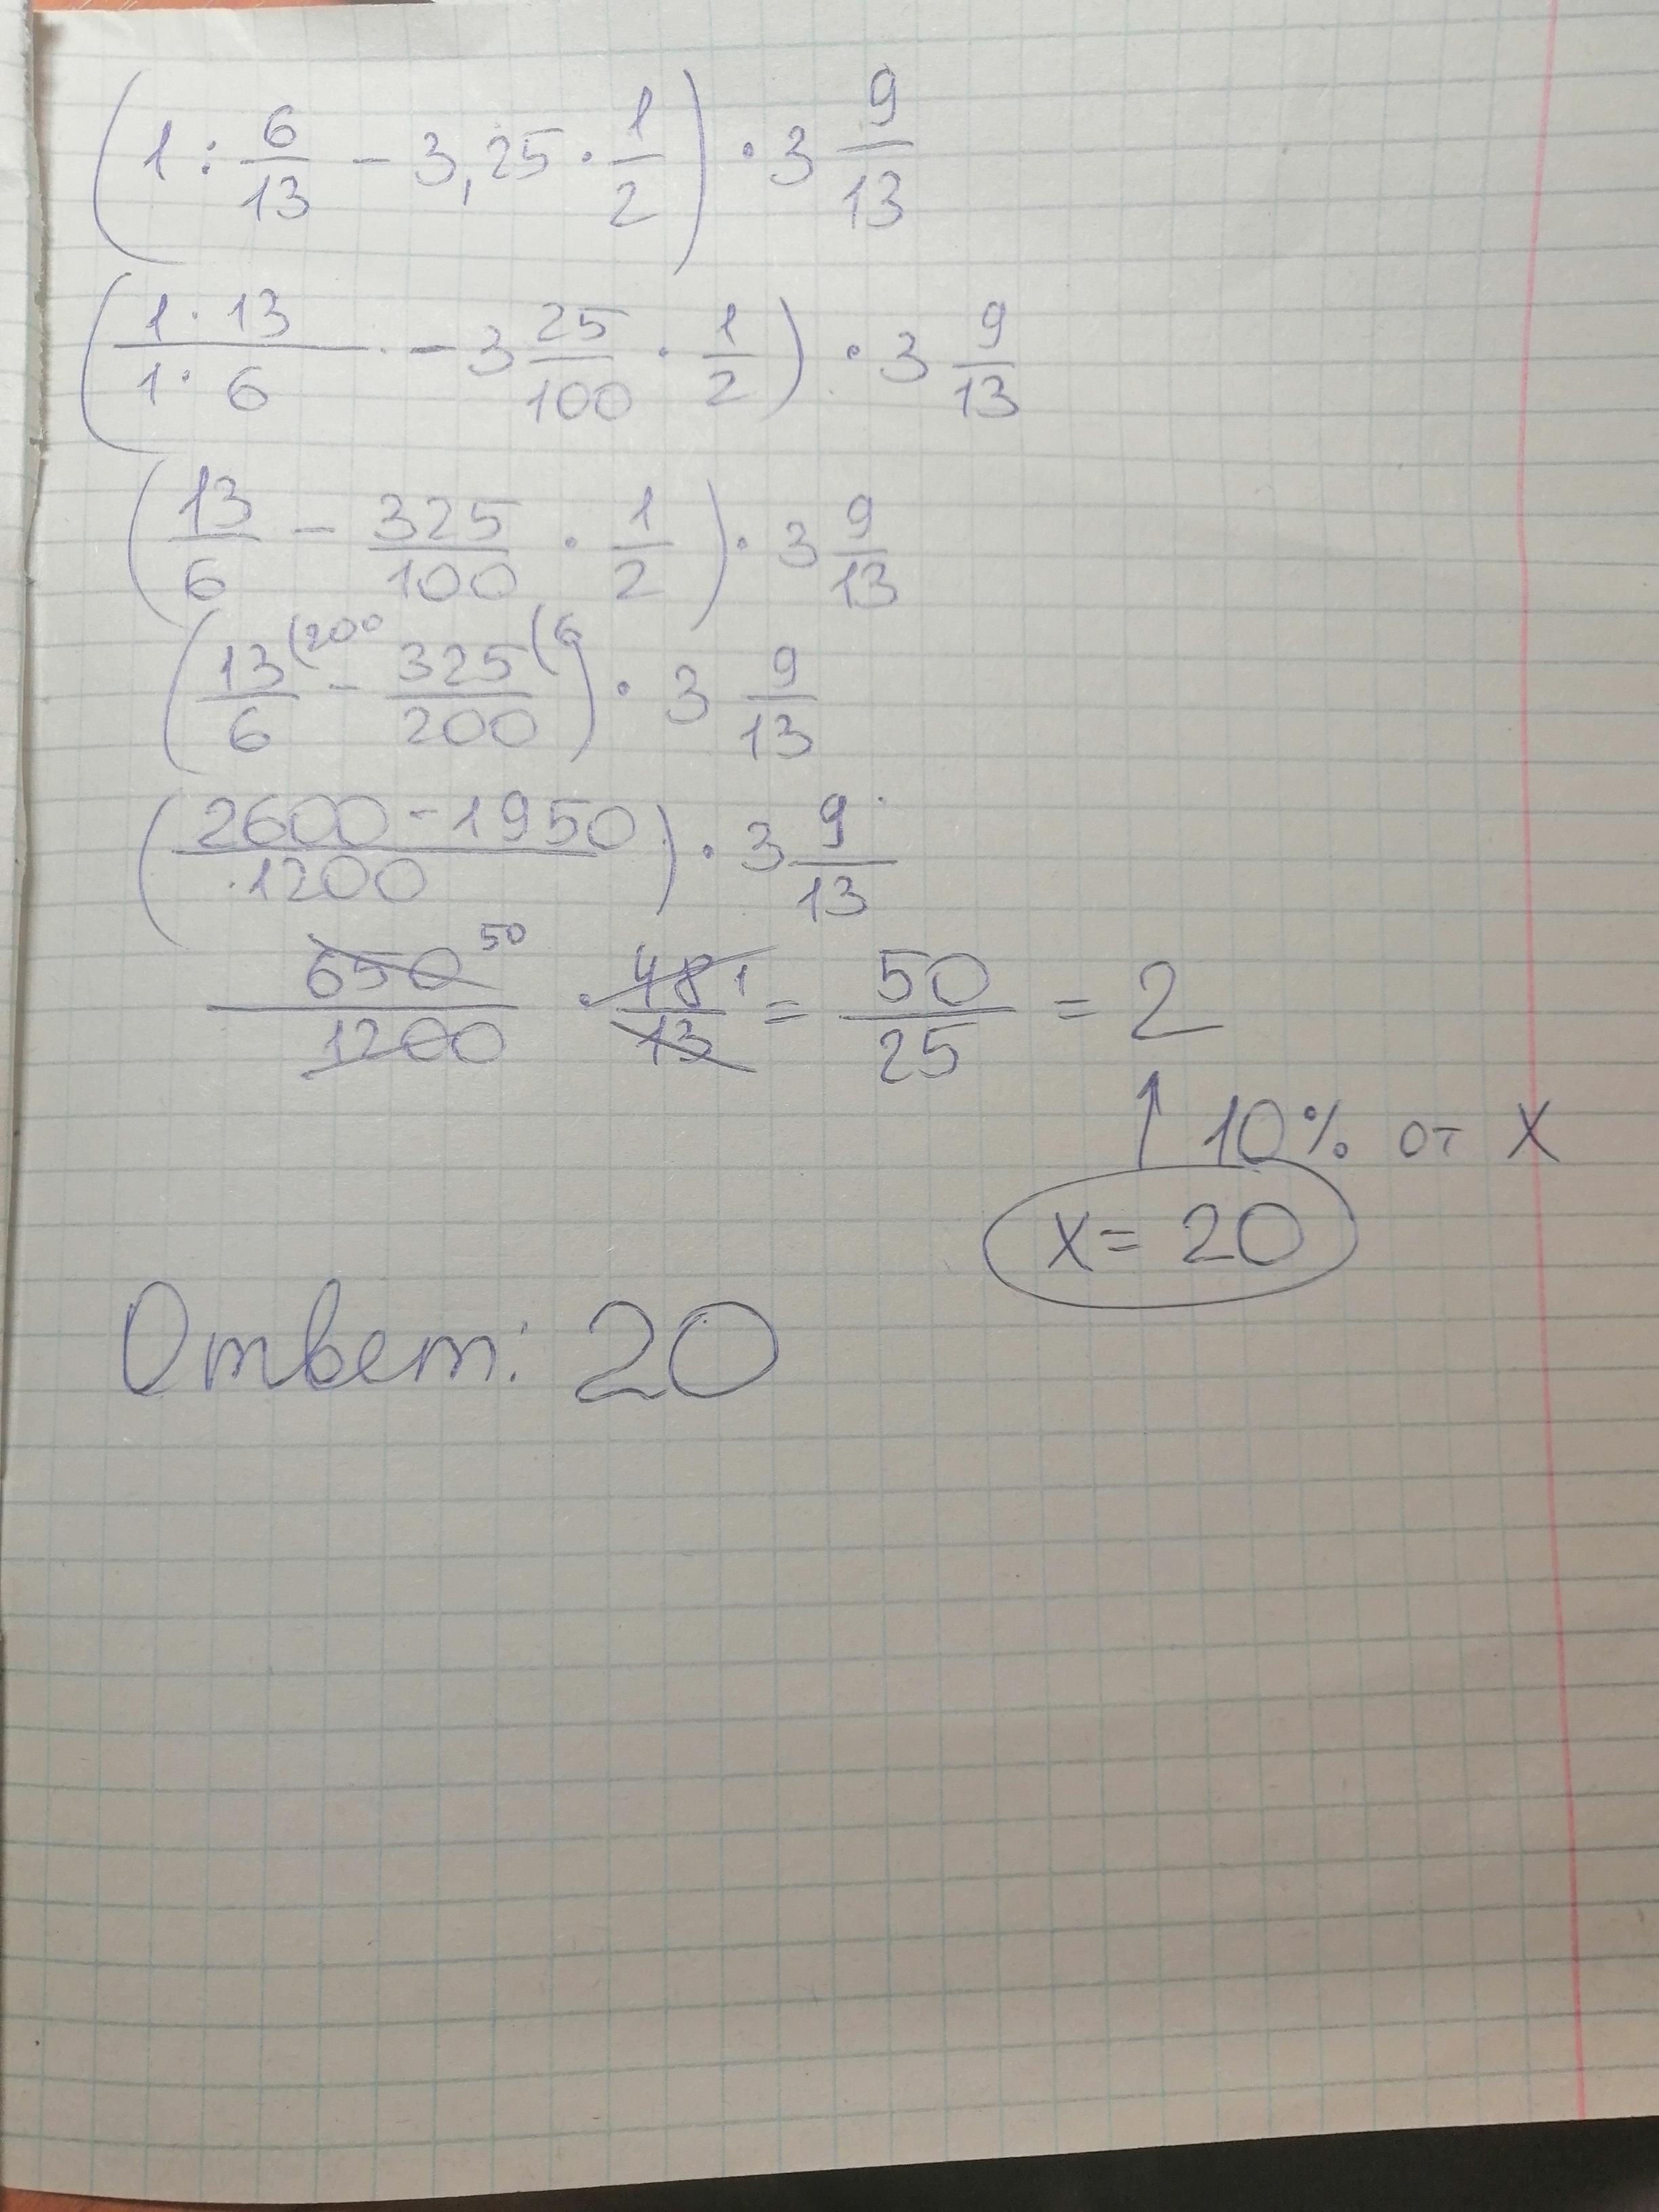 (1 : 6/13 - 3,25 · 1/2) · 3 9/13
(1 · 13 / 1 · 6 - 3 25/100 · 1/2) · 3 9/13
(13/6 - 325/100 · 1/2) · 3 9/13
(13/6 (200 - 325/200 (6) · 3 9/13
(2600 - 1950 / 1200) · 3 9/13
650 50 / 1200 · 48 1 / 13 = 50/25 = 2
↑ 10% от x
x = 20
Ответ: 20